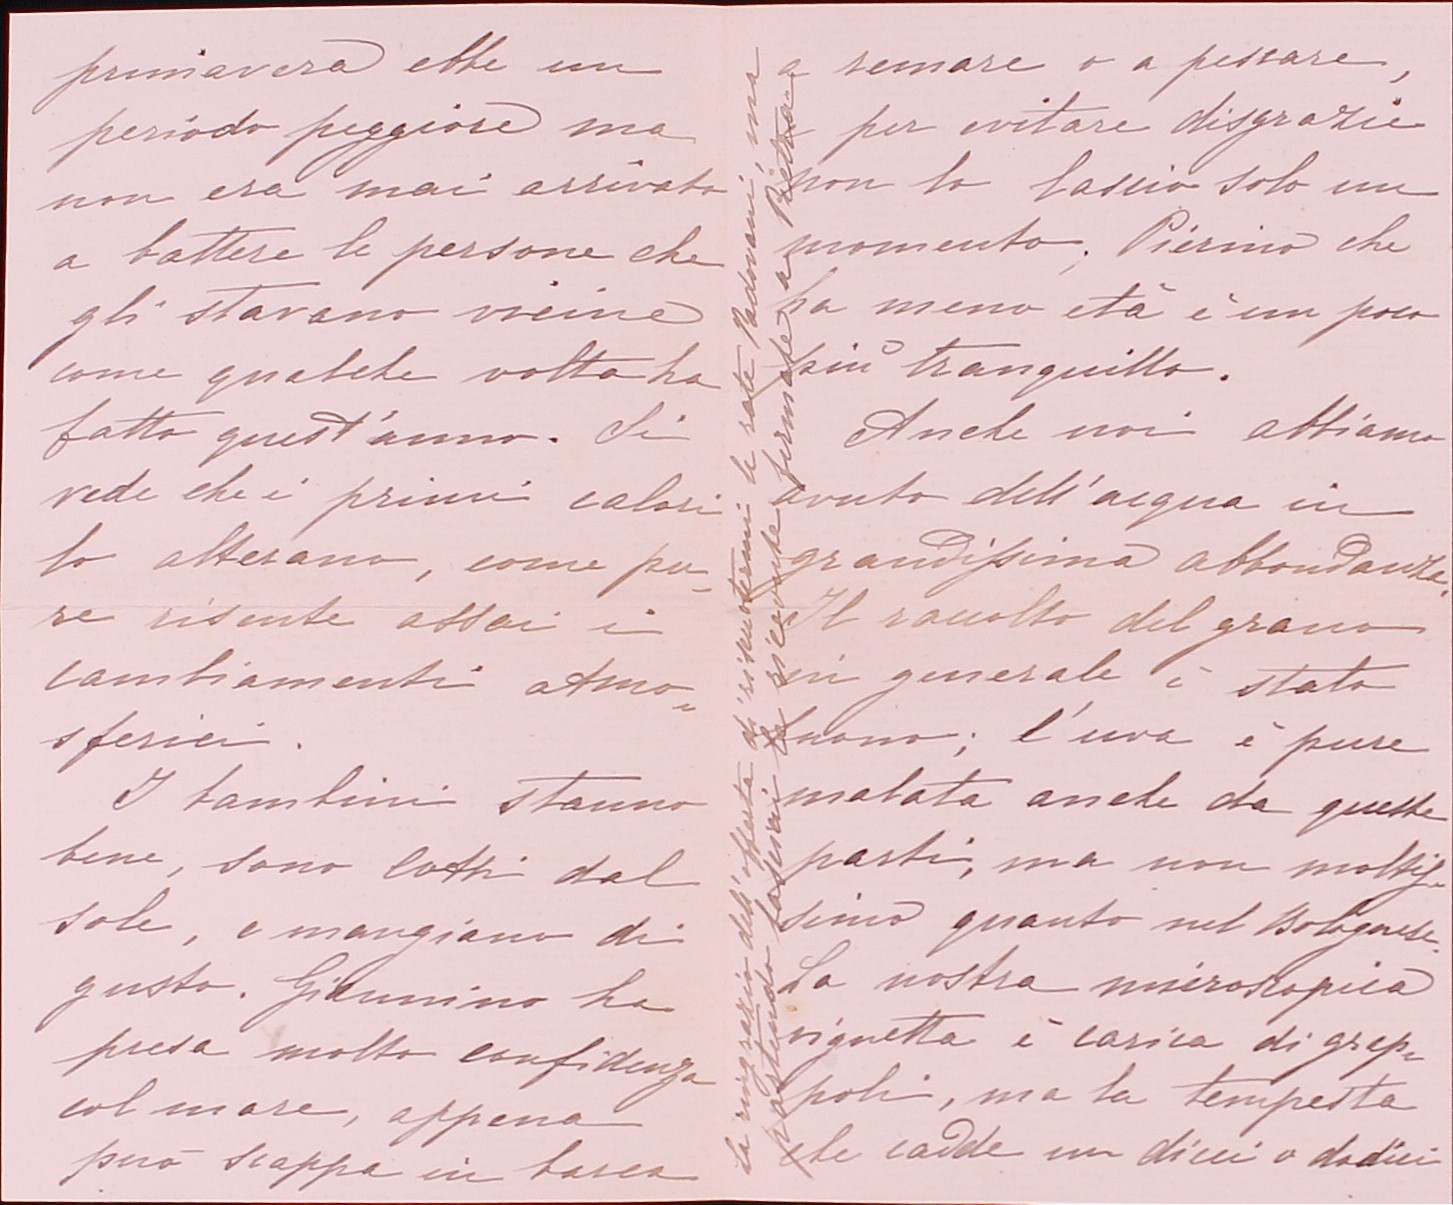 primavera ebbe un
periodo peggiore ma
non era mai arrivato
a battere le persone che
gli stavano vicine
come qualche volta ha
fatto quest'anno. Si
vede che i primi calori
lo alterano, come pu-
re risente assai i
cambiamenti atmo-
sferici.
I bambini stanno
bene, sono cotti dal
sole, e mangiano di
gusto. Giannino ha
presa molta confidenza
col mare, appena
può scappa in barca
a remare o a pescare,
e per evitare disgrazie
non lo lascio solo un
momento; Pierino che
ha meno età è un poco
più tranquillo.
Anche noi abbiamo
avuto dell'acqua in
grandissima abbondanza.
Il raccolto del grano
in generale è stato
buono; l'uva è pure
malata anche da queste
parti, ma non moltis-
simo quanto nel bolognese.
La nostra microscopica
vignetta è carica di grap-
poli, ma la tempesta
che cadde un dieci o dodici
La ringrazio dell'offerta di riscuotermi le rate Padovani, ma
partendo lasciai le ricevute firmate a Pietra